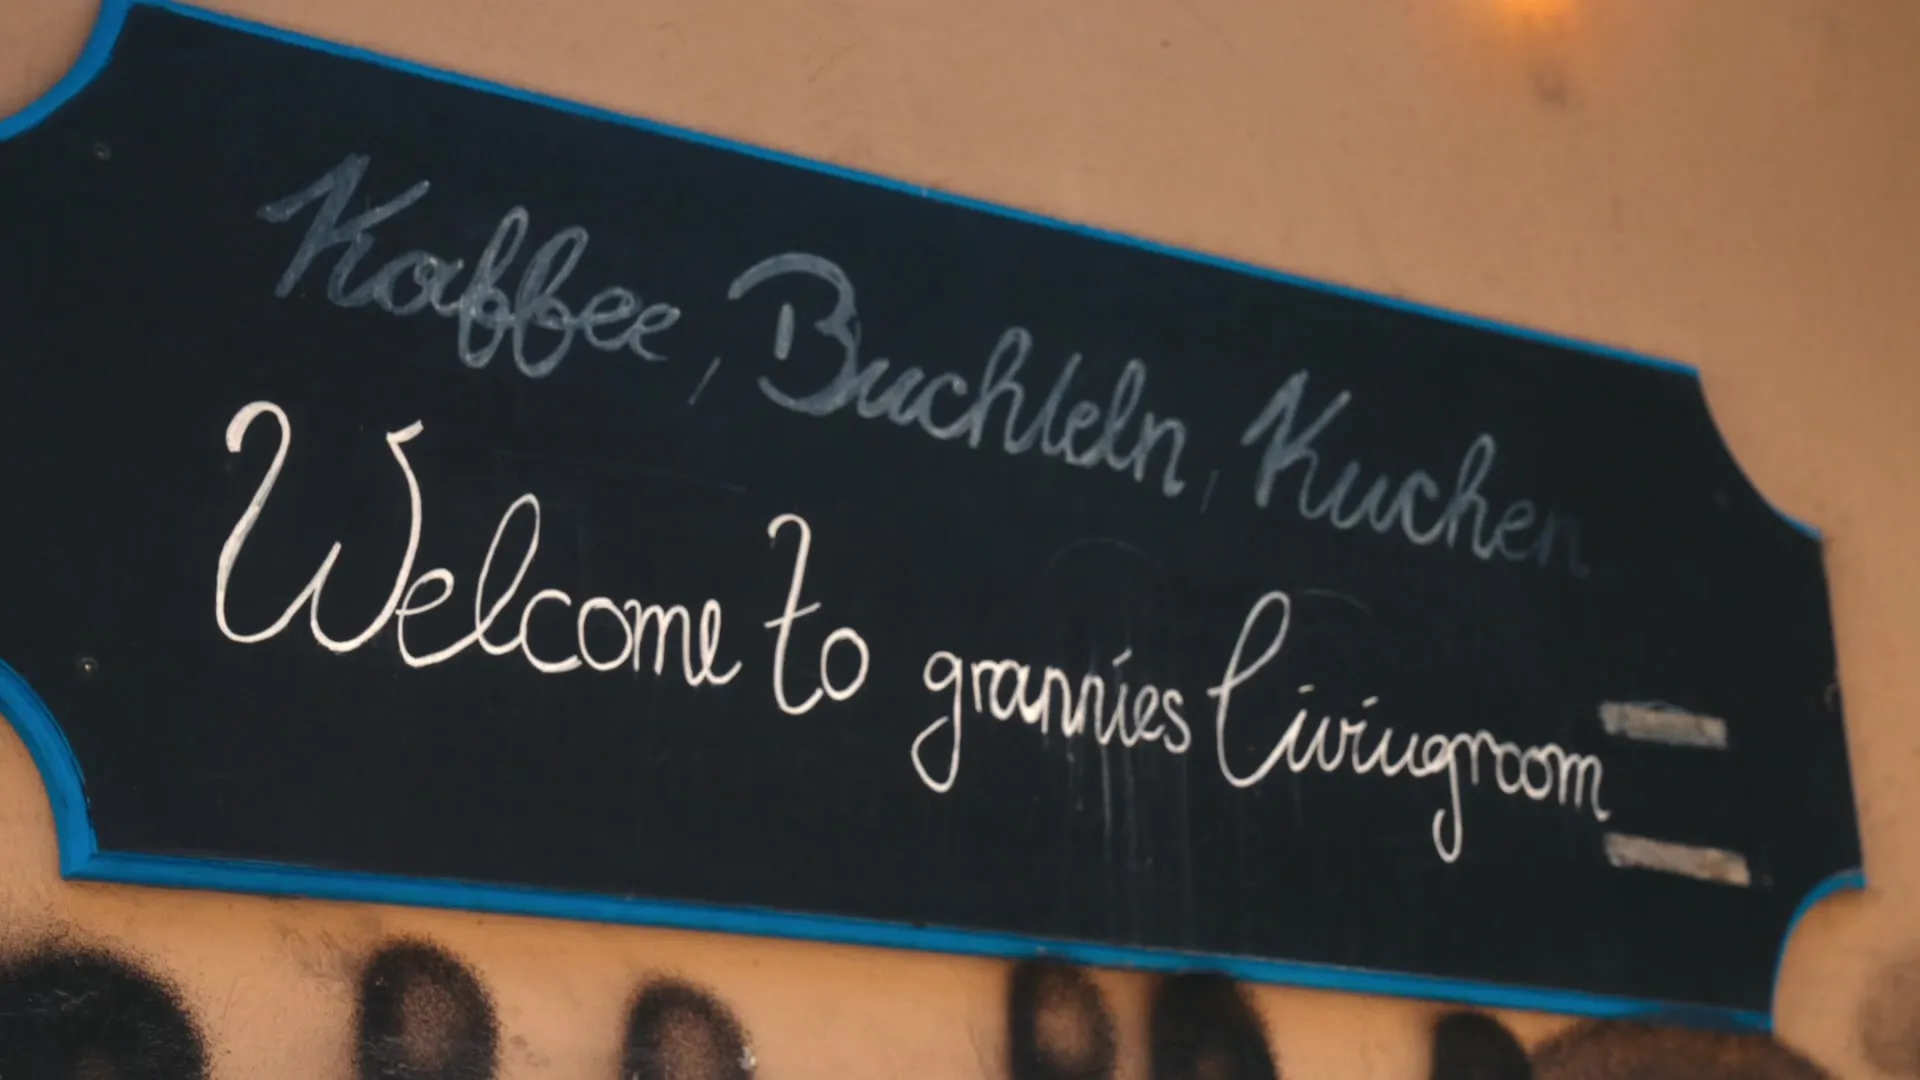 Kaffee, Buchteln, Kuchen
Welcome to grannies livingroom